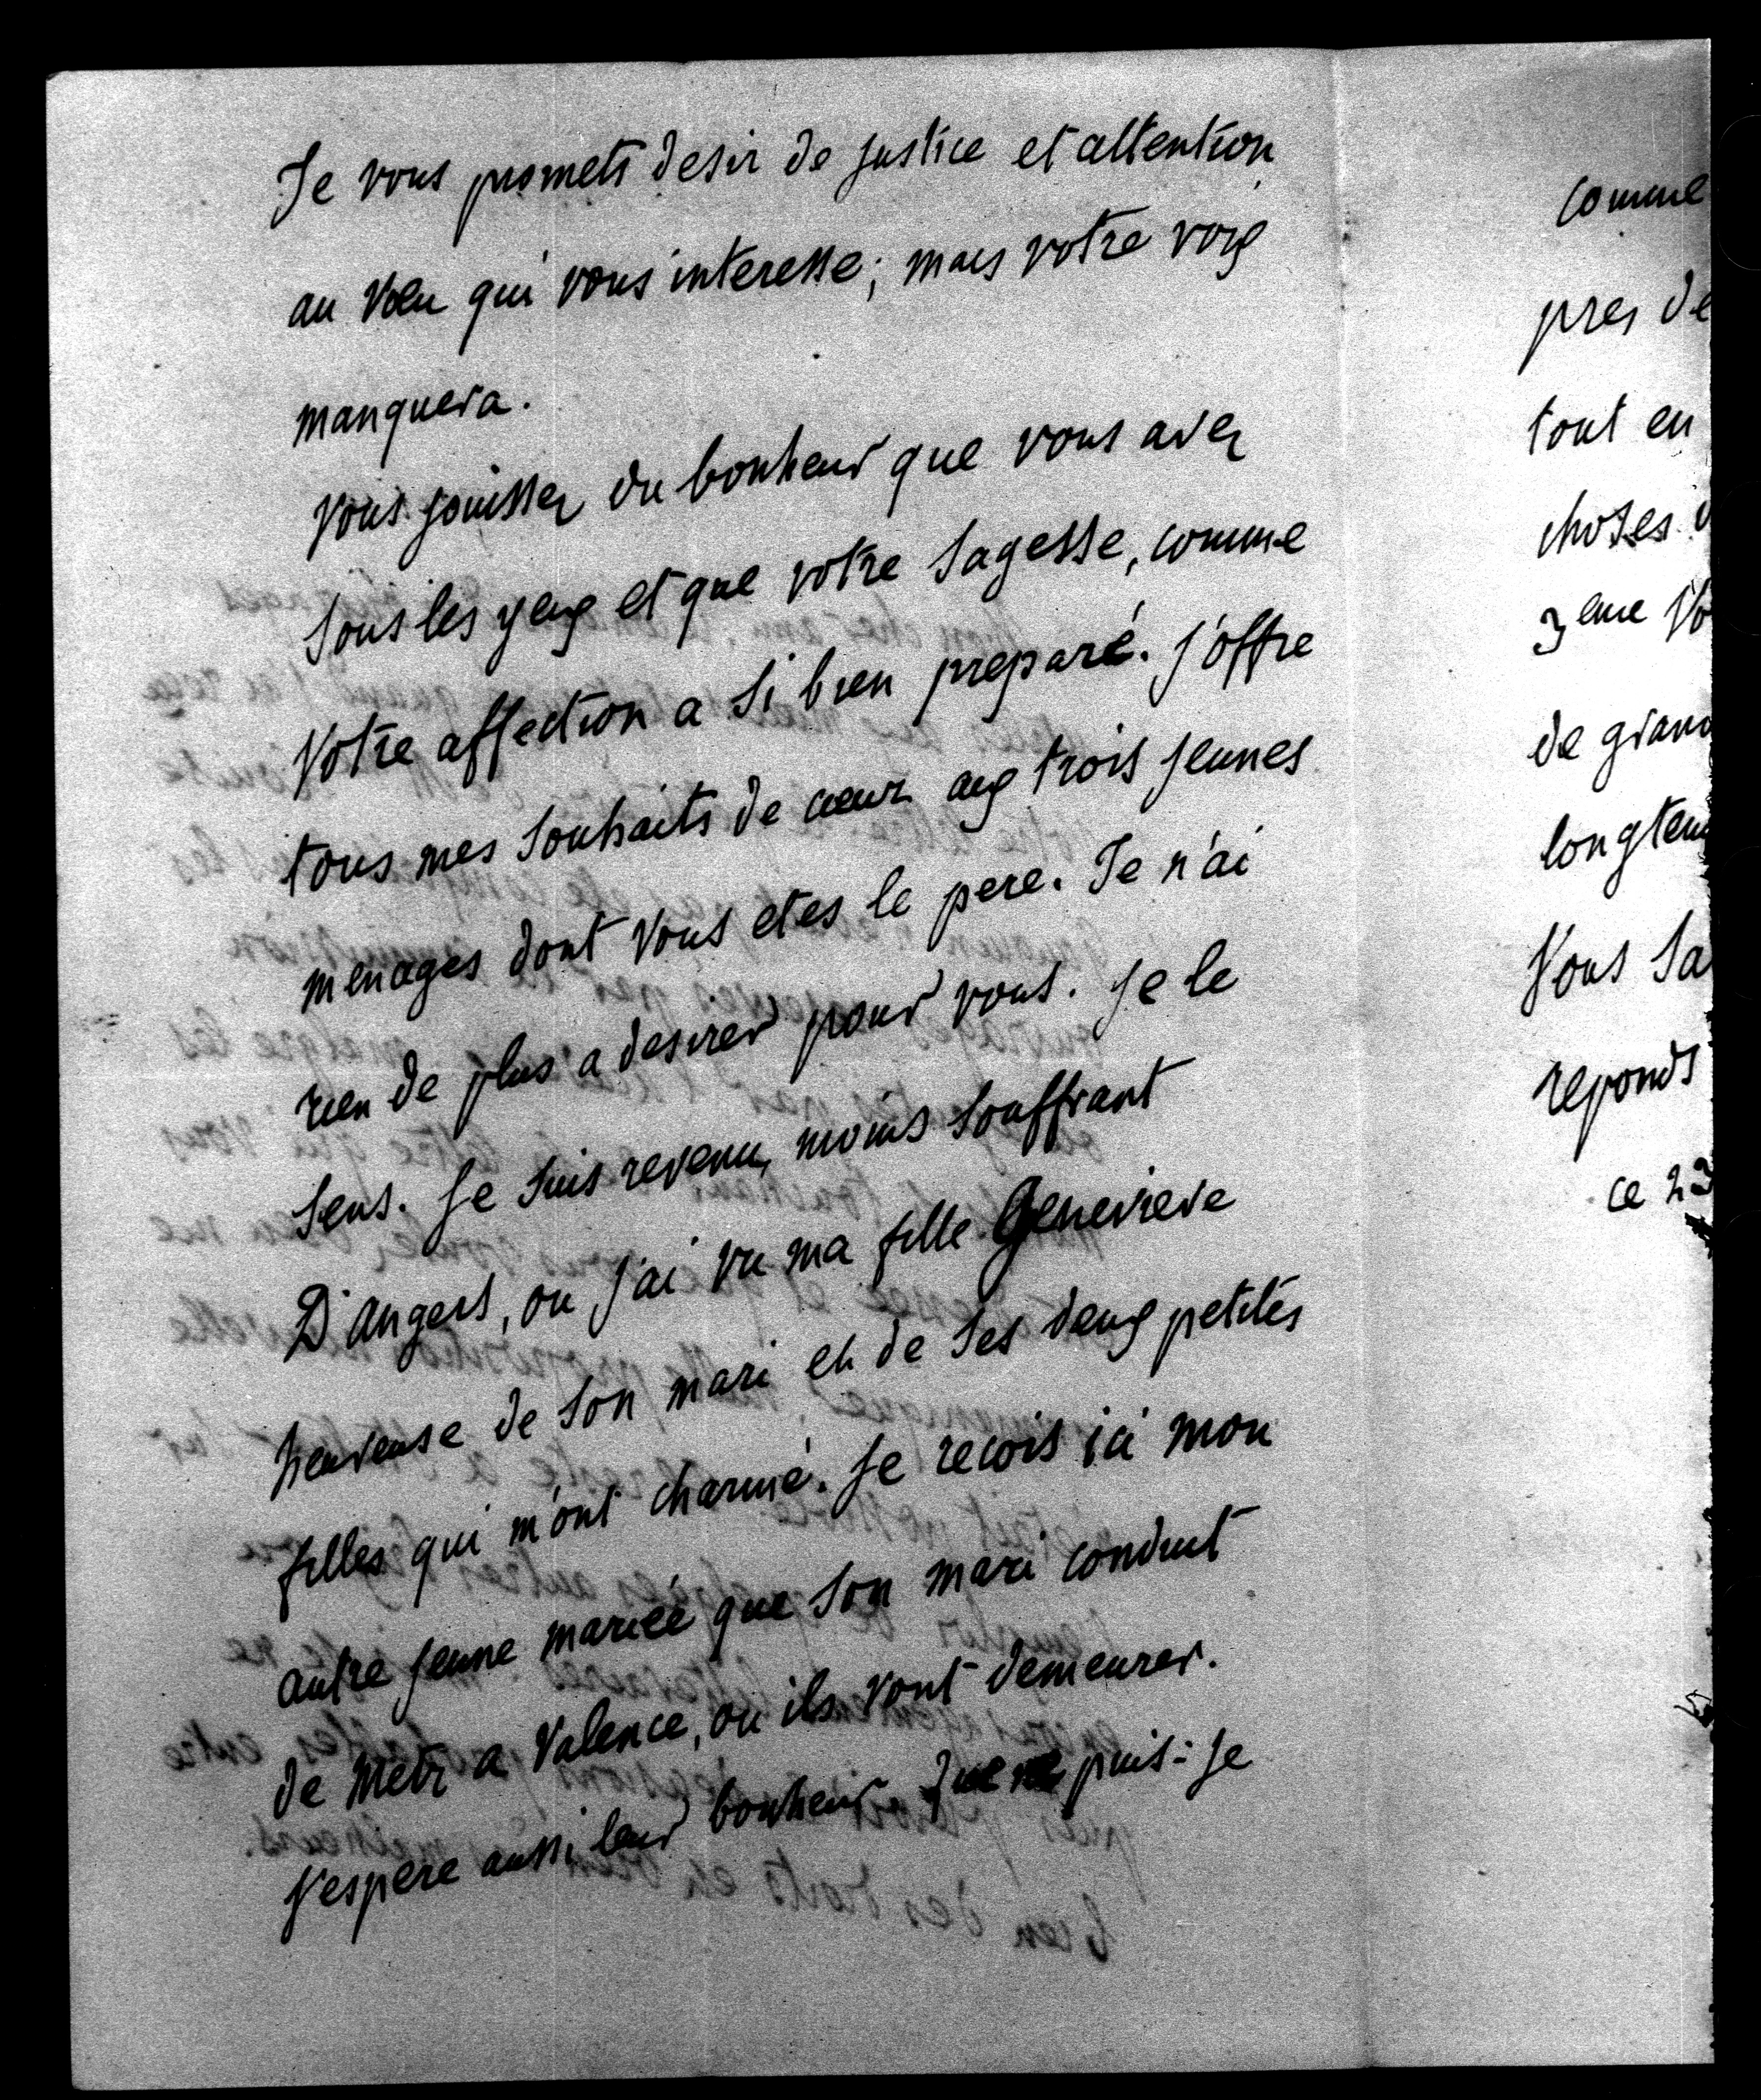 Je vous promets desir de justice et attention
au voeu qui vous interesse; mais votre voix
manquera.
Vous jouissez du bonheur que vous avez
sous les yeux et que votre sagesse, comme
votre affection a si bien preparé. J'offre
tous mes souhaits de coeur aux trois jeunes
menages dont vous etes le pere. Je n'ai
rien de plus a desirer pour vous. Je le
sens. Je suis revenu, moins souffrant
D'angers, ou j'ai vu ma fille Genevieve
heureuse de son mari et de ses deux petites
filles qui m'ont charmé. Je recois ici mon
autre jeune mariée que son mari conduit
de Metz a Valence, ou ils vont demeurer.
J'espere aussi leur bonheur. Que ne puis-je
comme
pres de
tout en
choses
3eme Vo
de grand
longtem
Vous sa
reponds
ce 23